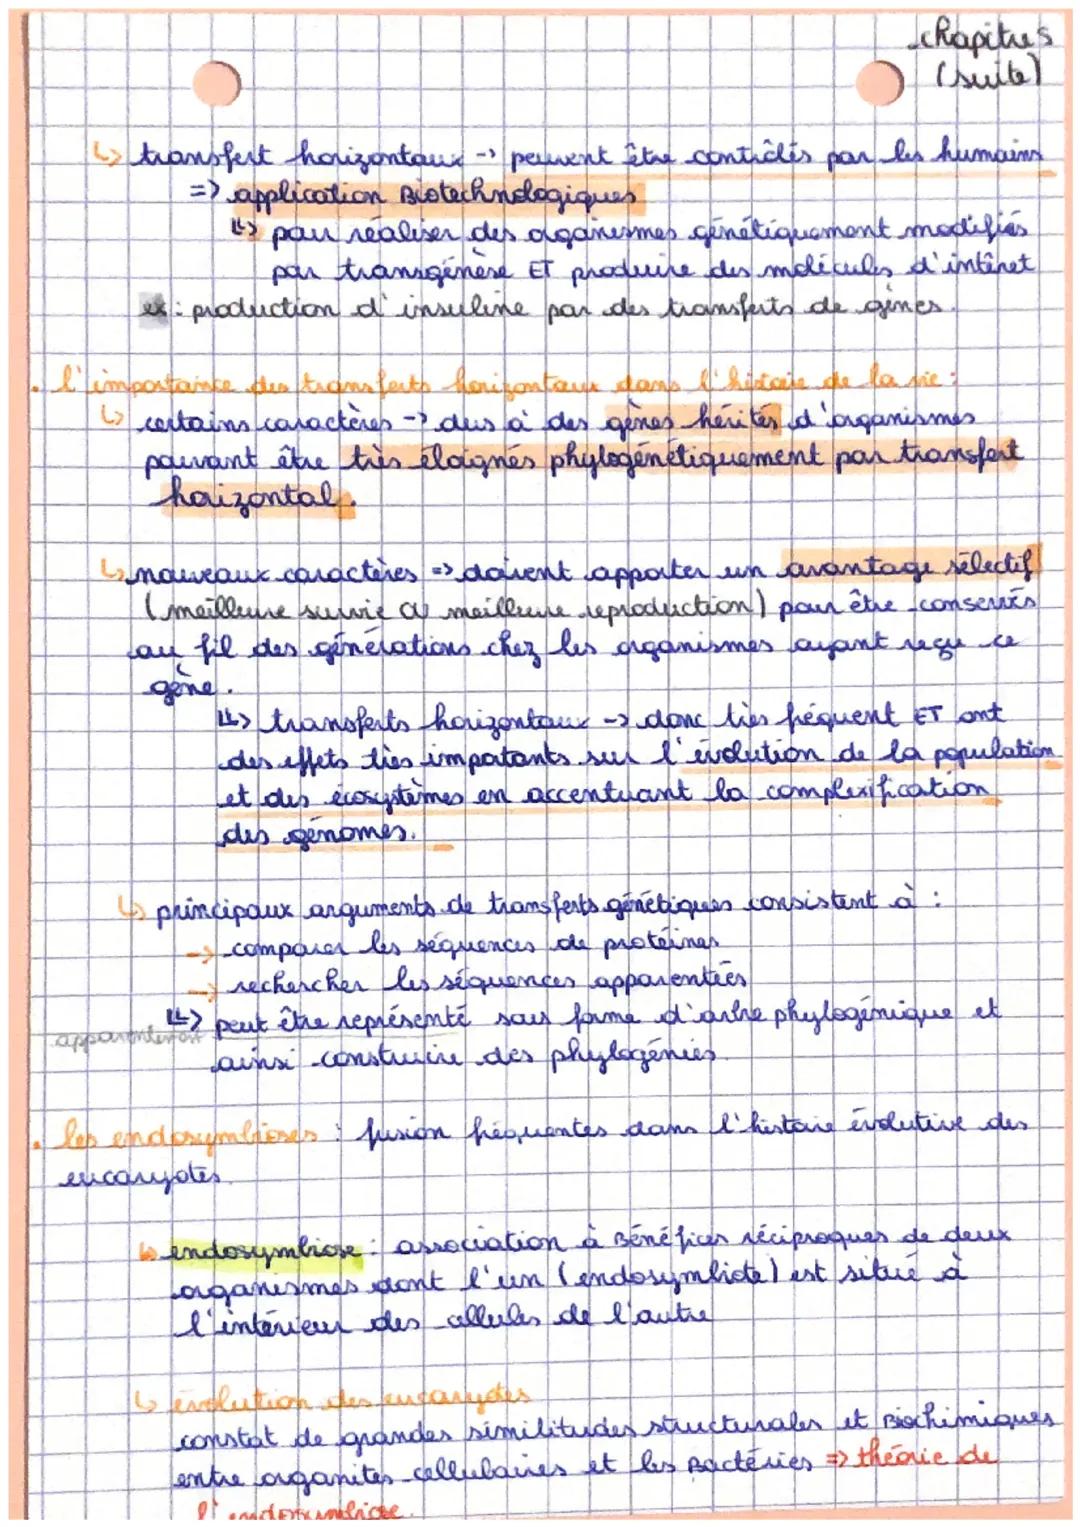 chapitres
(suite)
↳ transfert horizontaux -> peuvent être contrôlés par les humains
=> application Biotechnologiques
↳ pour réaliser des organismes génétiquement modifiés
par transgénèse ET produire des molécules d'intêret
ex : production d'insuline par des transferts de gènes.
. l'importance des transferts horizontaux dans l'histoire de la vie :
↳ certains caractères -> dus à des gènes hérités d'organismes
pouvant être très éloignés phylogénétiquement par transfert
horizontal.
↳ nouveaux caractères => doivent apporter un avantage sélectif
(meilleure survie meilleure reproduction) pour être conservés
au fil des générations chez les organismes ayant reçu ce
gène.
↳ transferts horizontaux -> donc très fréquent ET ont
des effets très importants sur l'évolution de la population
et des écosystèmes en accentuant la complexification
des génomes.
↳ principaux arguments de transferts génétiques consistent à :
-> comparer les séquences de protéines
-> rechercher les séquences apparentées
↳ peut être représenté sous forme d'arbre phylogénique et
ainsi construire des phylogénies.
. les endosymbioses : fusion fréquentes dans l'histoire évolutive des
eucaryotes.
↳ endosymbiose : association à Bénéfices réciproques de deux
organismes dont l'un (endosymbiote) est situé à
l'intérieur des cellules de l'autre
↳ évolution des eucaryotes
constat de grandes similitudes structurales et Biochimiques
entre organites cellulaires et les Bactéries => théorie de
l'endosymbiose.